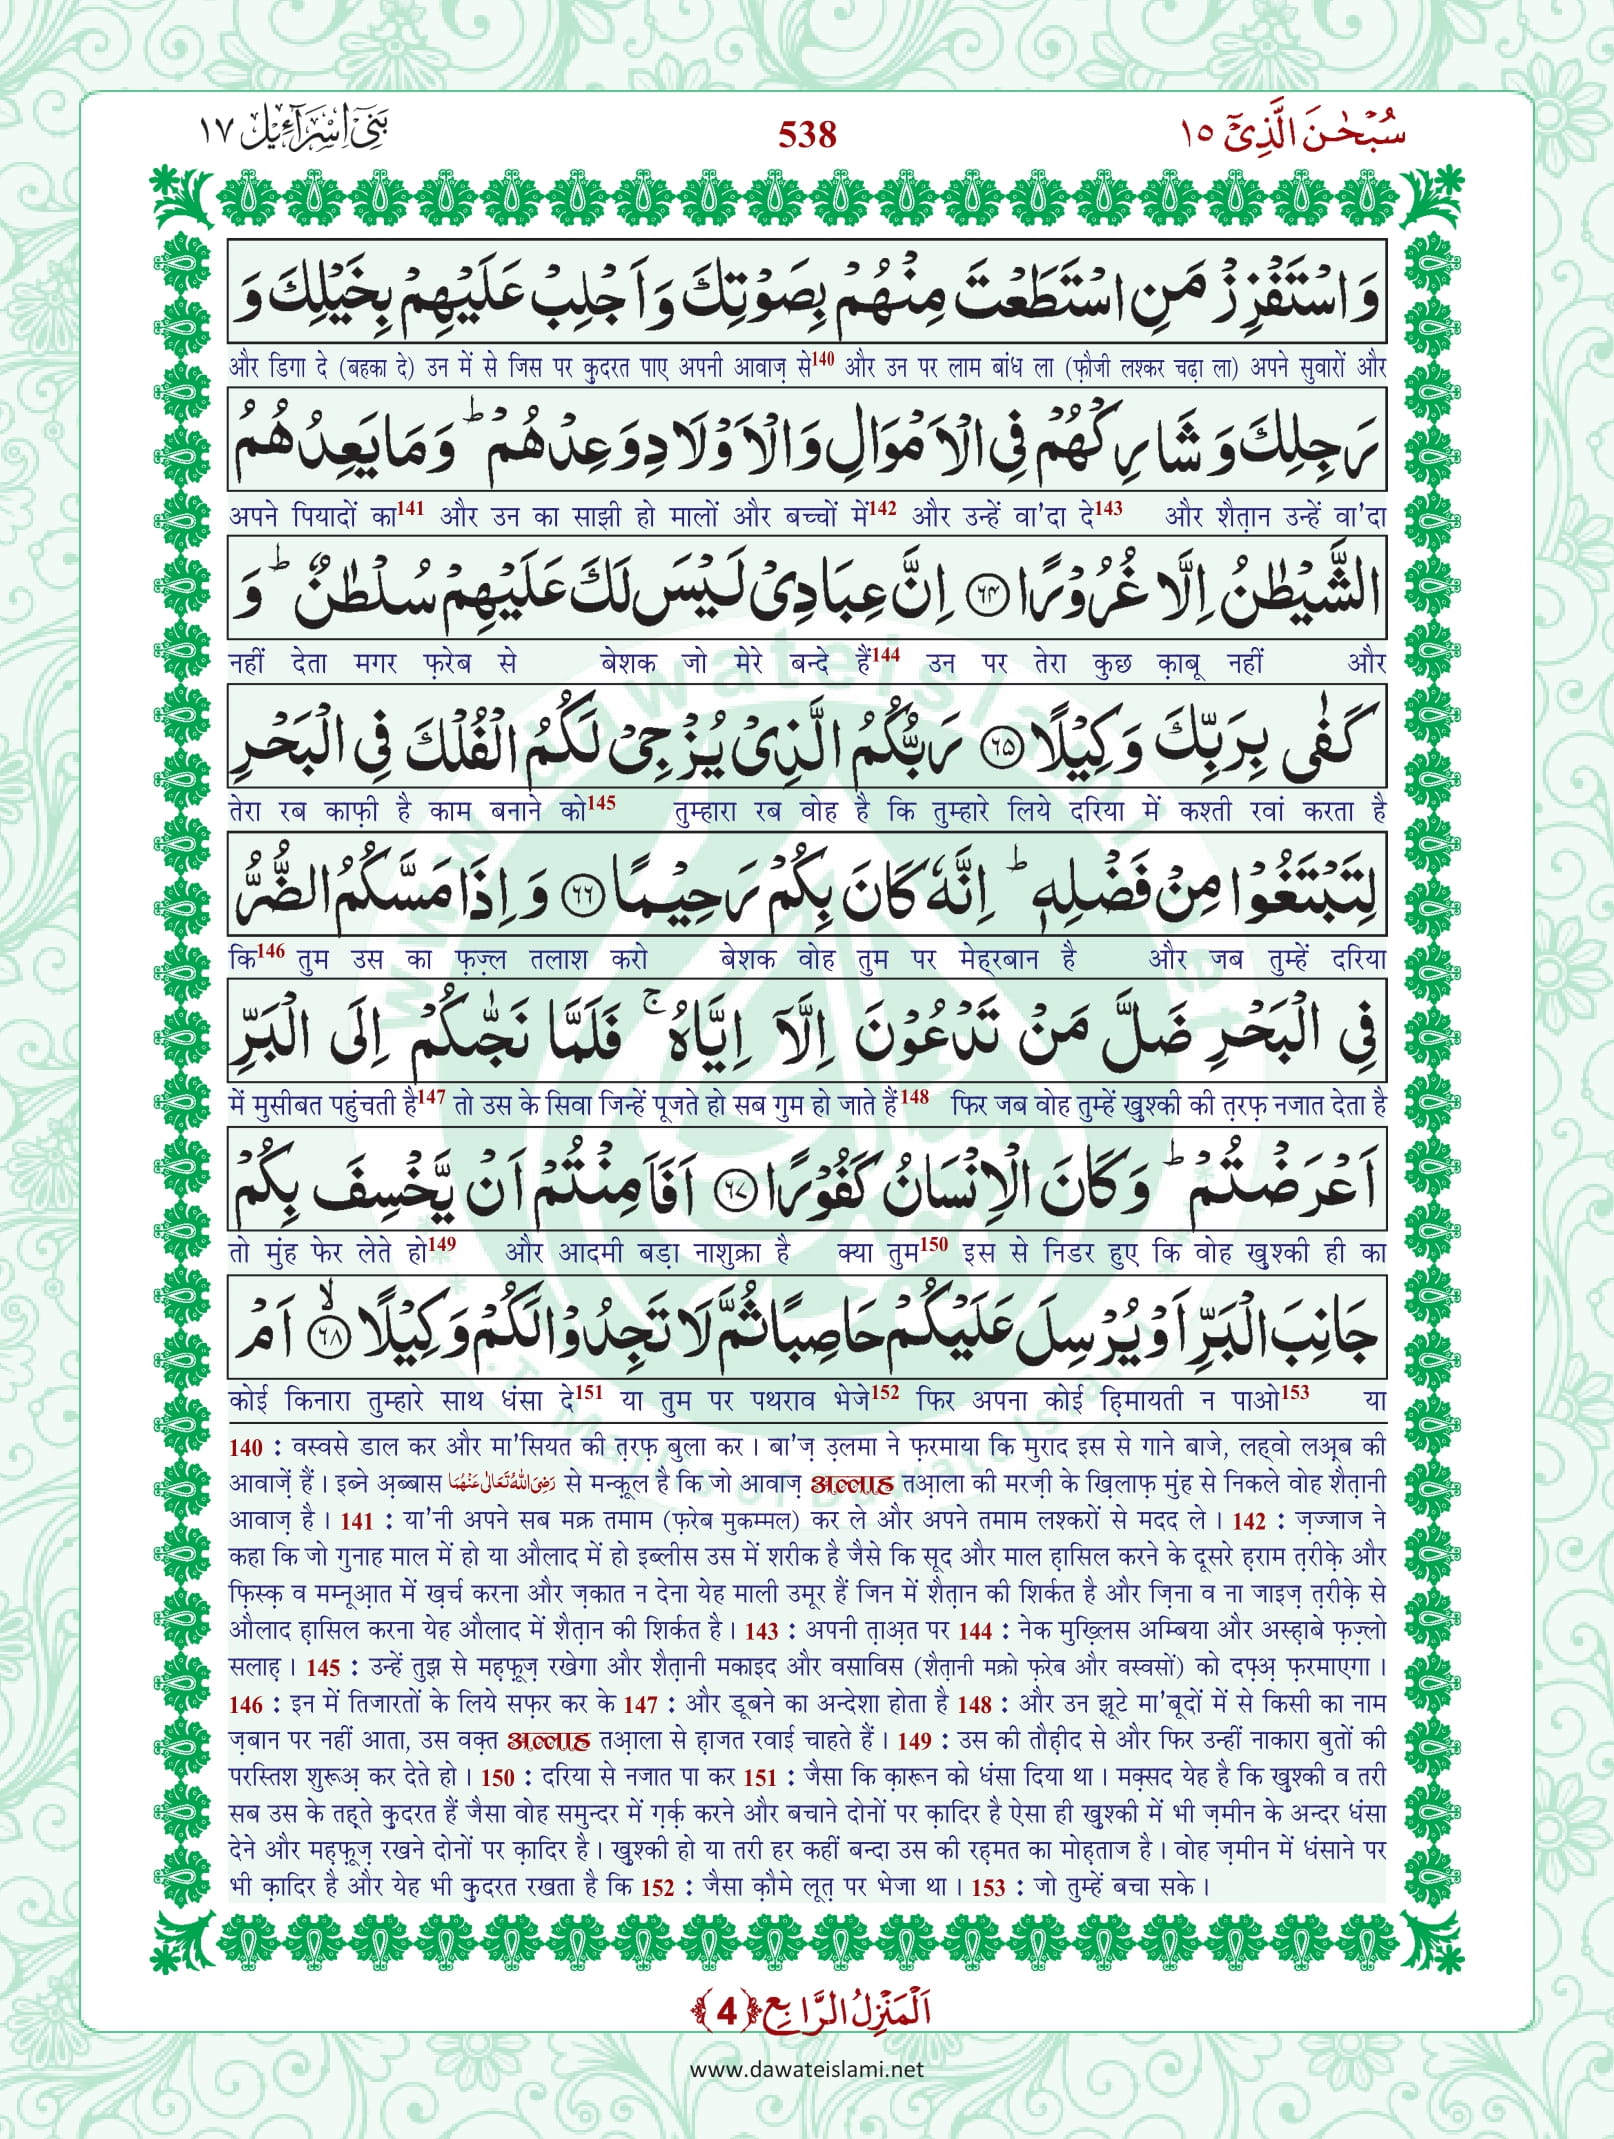 سُبْحٰنَ الَّذِیْٓ ١٥
538
بَنِیْٓ اِسْرَآءِیْل ١٧
وَ اسْتَفْزِزْ مَنِ اسْتَطَعْتَ مِنْهُمْ بِصَوْتِكَ وَ اَجْلِبْ عَلَیْهِمْ بِخَیْلِكَ وَ
और डिगा दे (बहका दे) उन में से जिस पर क़ुदरत पाए अपनी आवाज़ से140 और उन पर लाम बांध ला (फ़ौजी लश्कर चढ़ा ला) अपने सुवारों और
رَجِلِكَ وَ شَارِكْهُمْ فِی الْاَمْوَالِ وَ الْاَوْلَادِ وَ عِدْهُمْ ؕ وَ مَا یَعِدُهُمُ
अपने पियादों का141 और उन का साझी हो मालों और बच्चों में142 और उन्हें वा'दा दे143 और शैत़ान उन्हें वा'दा
الشَّیْطٰنُ اِلَّا غُرُوْرًا ﴿٦٤﴾ اِنَّ عِبَادِیْ لَیْسَ لَكَ عَلَیْهِمْ سُلْطٰنٌ ؕ وَ
नहीं देता मगर फ़रेब से बेशक जो मेरे बन्दे हैं144 उन पर तेरा कुछ क़ाबू नहीं और
كَفٰی بِرَبِّكَ وَكِیْلًا ﴿٦٥﴾ رَبُّكُمُ الَّذِیْ یُزْجِیْ لَكُمُ الْفُلْكَ فِی الْبَحْرِ
तेरा रब काफ़ी है काम बनाने को145 तुम्हारा रब वोह है कि तुम्हारे लिये दरिया में कश्ती रवां करता है
لِتَبْتَغُوْا مِنْ فَضْلِهٖ ؕ اِنَّهٗ كَانَ بِكُمْ رَحِیْمًا ﴿٦٦﴾ وَ اِذَا مَسَّكُمُ الضُّرُّ
कि146 तुम उस का फ़ज़्ल तलाश करो बेशक वोह तुम पर मेह्रबान है और जब तुम्हें दरिया
فِی الْبَحْرِ ضَلَّ مَنْ تَدْعُوْنَ اِلَّاۤ اِیَّاهُ ۚ فَلَمَّا نَجّٰىكُمْ اِلَی الْبَرِّ
में मुसीबत पहुंचती है147 तो उस के सिवा जिन्हें पूजते हो सब गुम हो जाते हैं148 फिर जब वोह तुम्हें खुश्की की त़रफ़ नजात देता है
اَعْرَضْتُمْ ؕ وَ كَانَ الْاِنْسَانُ كَفُوْرًا ﴿٦٧﴾ اَفَاَمِنْتُمْ اَنْ یَّخْسِفَ بِكُمْ
तो मुंह फेर लेते हो149 और आदमी बड़ा नाशुक्रा है क्या तुम150 इस से निडर हुए कि वोह खुश्की ही का
جَانِبَ الْبَرِّ اَوْ یُرْسِلَ عَلَیْكُمْ حَاصِبًا ثُمَّ لَا تَجِدُوْا لَكُمْ وَكِیْلًا ۙ﴿٦٨﴾ اَمْ
कोई किनारा तुम्हारे साथ धंसा दे151 या तुम पर पथराव भेजे152 फिर अपना कोई ह़िमायती न पाओ153 या
140 : वस्वसे डाल कर और मा'सियत की त़रफ़ बुला कर। बा'ज़ उ़लमा ने फ़रमाया कि मुराद इस से गाने बाजे, लह्वो लअ़ब की
आवाज़ें हैं। इब्ने अ़ब्बास رَضِیَ اللهُ تَعَالٰی عَنْهُمَا से मन्क़ूल है कि जो आवाज़ अल्लाह तआ़ला की मरज़ी के ख़िलाफ़ मुंह से निकले वोह शैत़ानी
आवाज़ है। 141 : या'नी अपने सब मक्र तमाम (फ़रेब मुकम्मल) कर ले और अपने तमाम लश्करों से मदद ले। 142 : ज़ज्जाज ने
कहा कि जो गुनाह माल में हो या औलाद में हो इब्लीस उस में शरीक है जैसे कि सूद और माल ह़ासिल करने के दूसरे ह़राम त़रीक़े और
फ़िस्क़ व मम्नूआ़त में ख़र्च करना और ज़कात न देना येह माली उमूर हैं जिन में शैत़ान की शिर्कत है और ज़िना व ना जाइज़ त़रीक़े से
औलाद ह़ासिल करना येह औलाद में शैत़ान की शिर्कत है। 143 : अपनी त़ाअ़त पर 144 : नेक मुख़्लिस अम्बिया और अस्ह़ाबे फ़ज़्लो
सलाह़। 145 : उन्हें तुझ से मह़फ़ूज़ रखेगा और शैत़ानी मकाइद और वसाविस (शैत़ानी मक्रो फ़रेब और वस्वसों) को दफ़्अ़ फ़रमाएगा।
146 : इन में तिजारतों के लिये सफ़र कर के 147 : और डूबने का अन्देशा होता है 148 : और उन झूटे मा'बूदों में से किसी का नाम
ज़बान पर नहीं आता, उस वक़्त अल्लाह तआ़ला से ह़ाजत रवाई चाहते हैं। 149 : उस की तौह़ीद से और फिर उन्हीं नाकारा बुतों की
परस्तिश शुरूअ़ कर देते हो। 150 : दरिया से नजात पा कर 151 : जैसा कि क़ारून को धंसा दिया था। मक़्सद येह है कि खुश्की व तरी
सब उस के तह़्ते क़ुदरत हैं जैसा वोह समुन्दर में ग़र्क़ करने और बचाने दोनों पर क़ादिर है ऐसा ही खुश्की में भी ज़मीन के अन्दर धंसा
देने और मह़फ़ूज़ रखने दोनों पर क़ादिर है। खुश्की हो या तरी हर कहीं बन्दा उस की रह़मत का मोह़ताज है। वोह ज़मीन में धंसाने पर
भी क़ादिर है और येह भी क़ुदरत रखता है कि 152 : जैसा क़ौमे लूत़ पर भेजा था। 153 : जो तुम्हें बचा सके।
اَلْمَنْزِلُ الرَّابِعُ ﴿4﴾
www.dawateislami.net